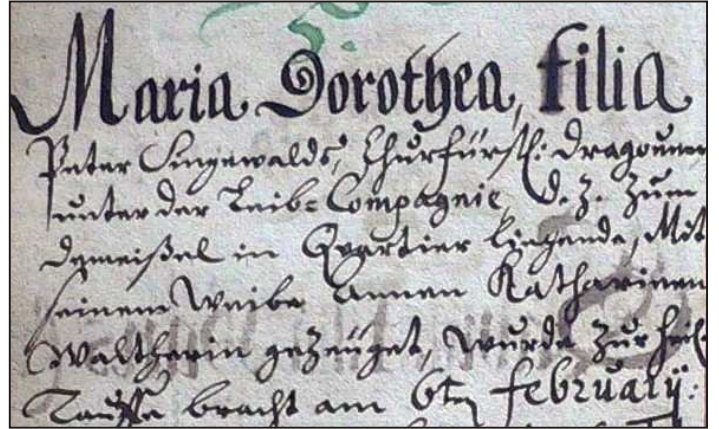 Maria Dorothea, filia
Peter Singewalds, Churfürstl: Dragouner
unter der Leib-Compagnie, d. z. zum
in Qvartier liegende, Mit
seinem Weibe Annen Katharinen
Waltherin gezeuget, wurde zur heil.
Tauffe bracht am 6ten February: